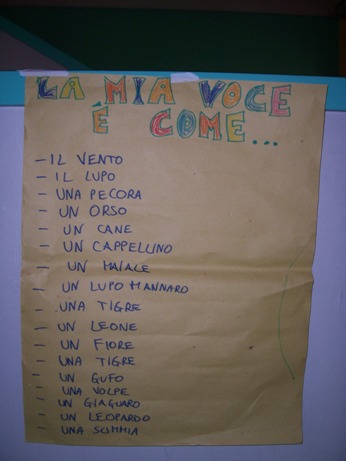 LA MIA VOCE
É COME...
- IL VENTO
- IL LUPO
- UNA PECORA
- UN ORSO
- UN CANE
- UN CAPPELLINO
- UN MAIALE
- UN LUPO MANNARO
- UNA TIGRE
- UN LEONE
- UN FIORE
- UNA TIGRE
- UN GUFO
- UNA VOLPE
- UN GIAGUARO
- UN LEOPARDO
- UNA SCIMMIA